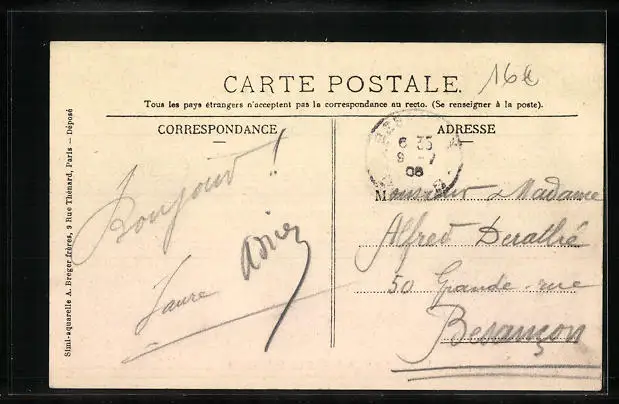 CARTE POSTALE.
16€
Tous les pays étrangers n'acceptent pas la correspondance au recto. (Se renseigner à la poste).
CORRESPONDANCE
ADRESSE
Bonjour !
6 35
9 - 7
08
Monsieur Madame
Alfred
50 Grande-rue
Besançon
Simi-aquarelle A. Breger frères, 9 Rue Thénard, Paris — Déposé